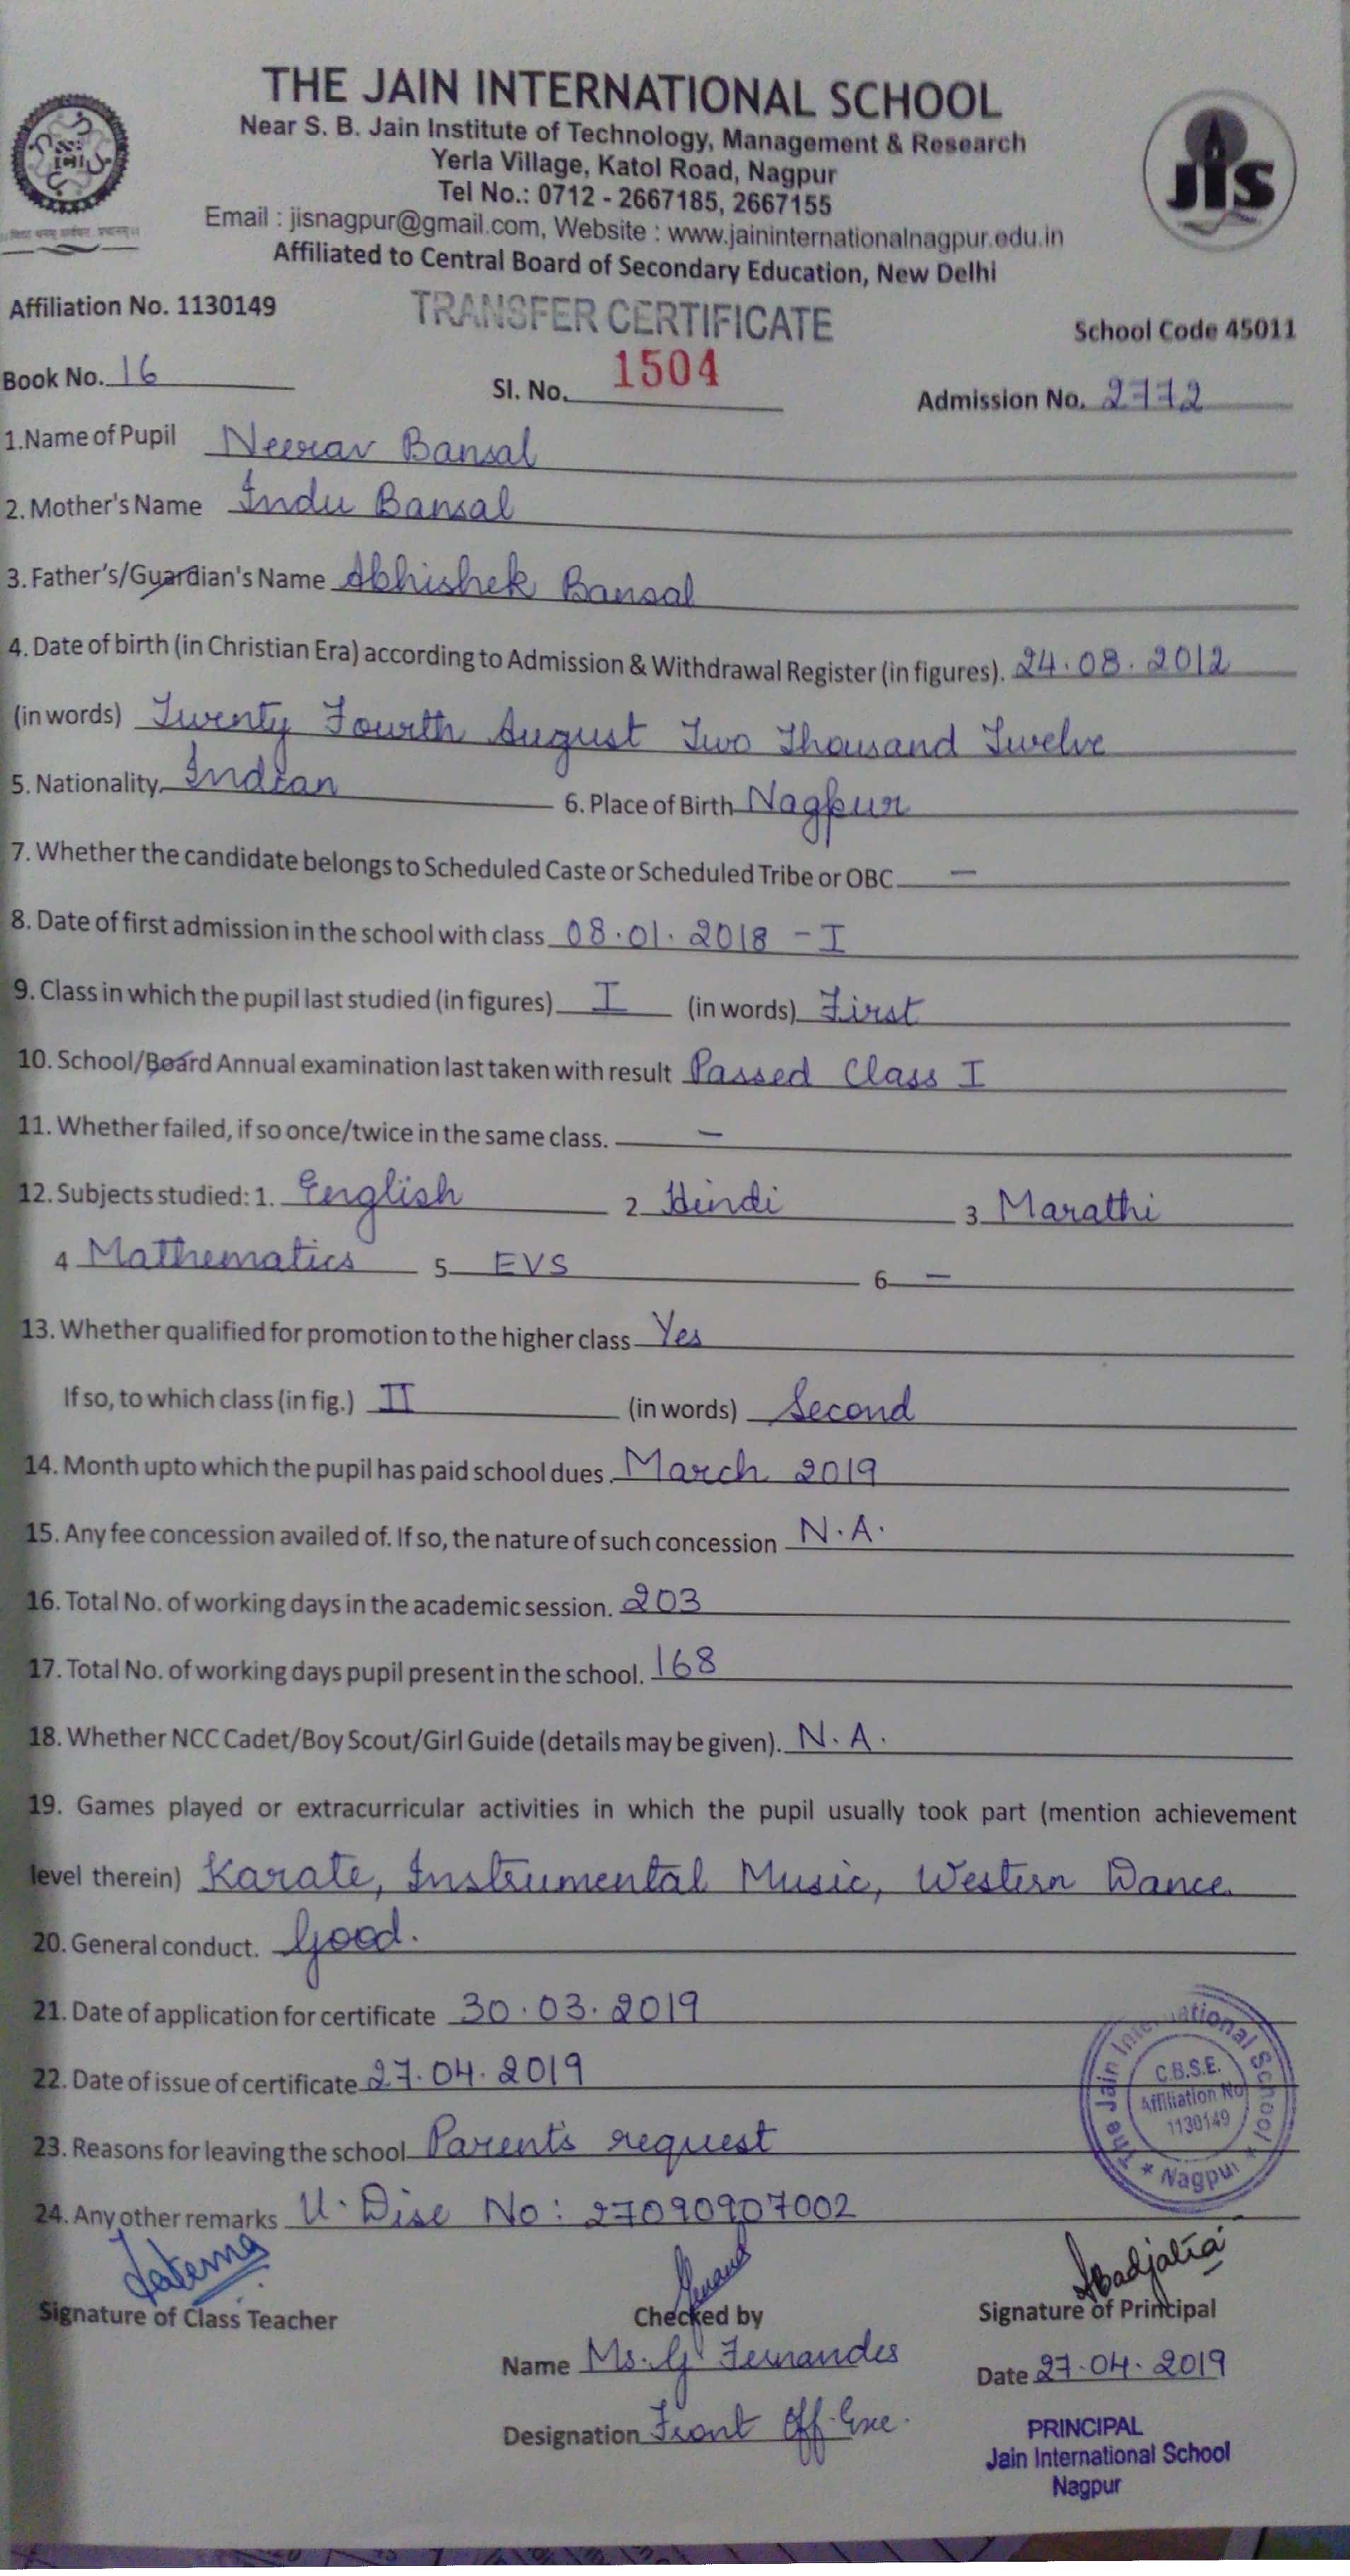 THE JAIN INTERNATIONAL SCHOOL
Near S. B. Jain Institute of Technology, Management & Research
Yerla Village, Katol Road, Nagpur
Tel No.: 0712 - 2667185, 2667155
Email : jisnagpur@gmail.com, Website : www.jaininternationalnagpur.edu.in
Affiliated to Central Board of Secondary Education, New Delhi
JIS
Affiliation No. 1130149 TRANSFER CERTIFICATE School Code 45011
Book No. 16 Sl. No. 1504 Admission No. 2772
1.Name of Pupil Neerav Bansal
2. Mother's Name Indu Bansal
3. Father's/Guardian's Name Abhishek Bansal
4. Date of birth (in Christian Era) according to Admission & Withdrawal Register (in figures). 24.08.2012
(in words) Twenty Fourth August Two Thousand Twelve
5. Nationality Indian 6. Place of Birth Nagpur
7. Whether the candidate belongs to Scheduled Caste or Scheduled Tribe or OBC —
8. Date of first admission in the school with class 08.01.2018 - I
9. Class in which the pupil last studied (in figures) I (in words) First
10. School/Board Annual examination last taken with result Passed Class I
11. Whether failed, if so once/twice in the same class. —
12. Subjects studied: 1. English 2 Hindi 3 Marathi
4 Mathematics 5 EVS 6 —
13. Whether qualified for promotion to the higher class Yes
If so, to which class (in fig.) II (in words) Second
14. Month upto which the pupil has paid school dues. March 2019
15. Any fee concession availed of. If so, the nature of such concession N.A.
16. Total No. of working days in the academic session. 203
17. Total No. of working days pupil present in the school. 168
18. Whether NCC Cadet/Boy Scout/Girl Guide (details may be given). N.A.
19. Games played or extracurricular activities in which the pupil usually took part (mention achievement
level therein) Karate, Instrumental Music, Western Dance.
20. General conduct. Good.
21. Date of application for certificate 30.03.2019
22. Date of issue of certificate 27.04.2019
23. Reasons for leaving the school Parent's request
24. Any other remarks U-Dise No: 27090907002
The Jain International School
C.B.S.E.
Affiliation No
1130149
* Nagpur *
Signature of Class Teacher Checked by Signature of Principal
Name Ms. G Fernandes Date 27.04.2019
Designation Front Off. Exe.
PRINCIPAL
Jain International School
Nagpur